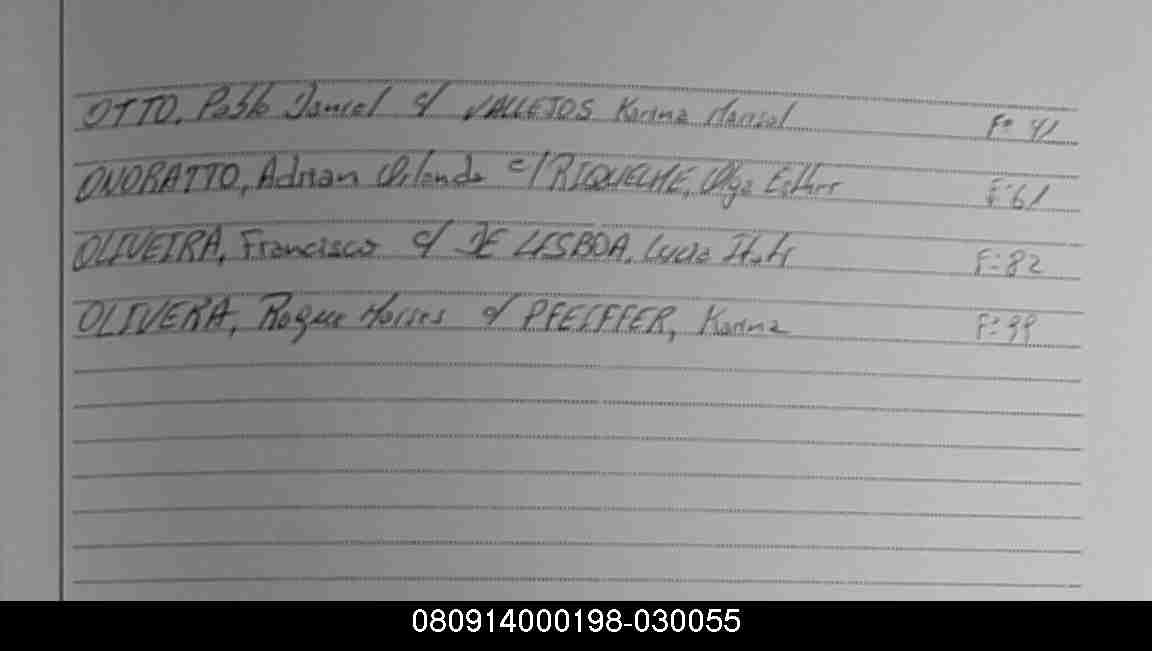 OTTO, Pablo Daniel c/ VALLEJOS Karina Marisol F: 41
ONORATTO, Adrian Orlando c/ RIQUELME, Olga Esther F: 61
OLIVEIRA, Francisco c/ DE LISBOA, Lucia F: 82
OLIVERA, Roque Moises c/ PFEIFFER, Karina F: 99
080914000198-030055